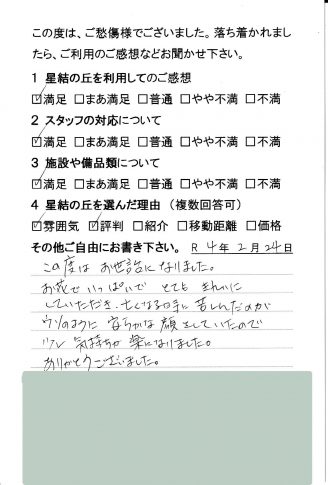 この度は、ご愁傷様でございました。落ち着かれまし
たら、ご利用のご感想などお聞かせ下さい。
1 星結の丘を利用してのご感想
☑満足 □まあ満足 □普通 □やや不満 □不満
2 スタッフの対応について
☑満足 □まあ満足 □普通 □やや不満 □不満
3 施設や備品類について
☑満足 □まあ満足 □普通 □やや不満 □不満
4 星結の丘を選んだ理由（複数回答可）
☑雰囲気 ☑評判 □紹介 □移動距離 □価格
その他ご自由にお書き下さい。 R 4年 2月 24日
この度は お世話になりました。
お花でいっぱいで とても きれいに
していただき、亡くなる時に 苦しんだのが
ウソのように 安らかな 顔をしていたので
少し 気持ちが 楽になりました。
ありがとうございました。